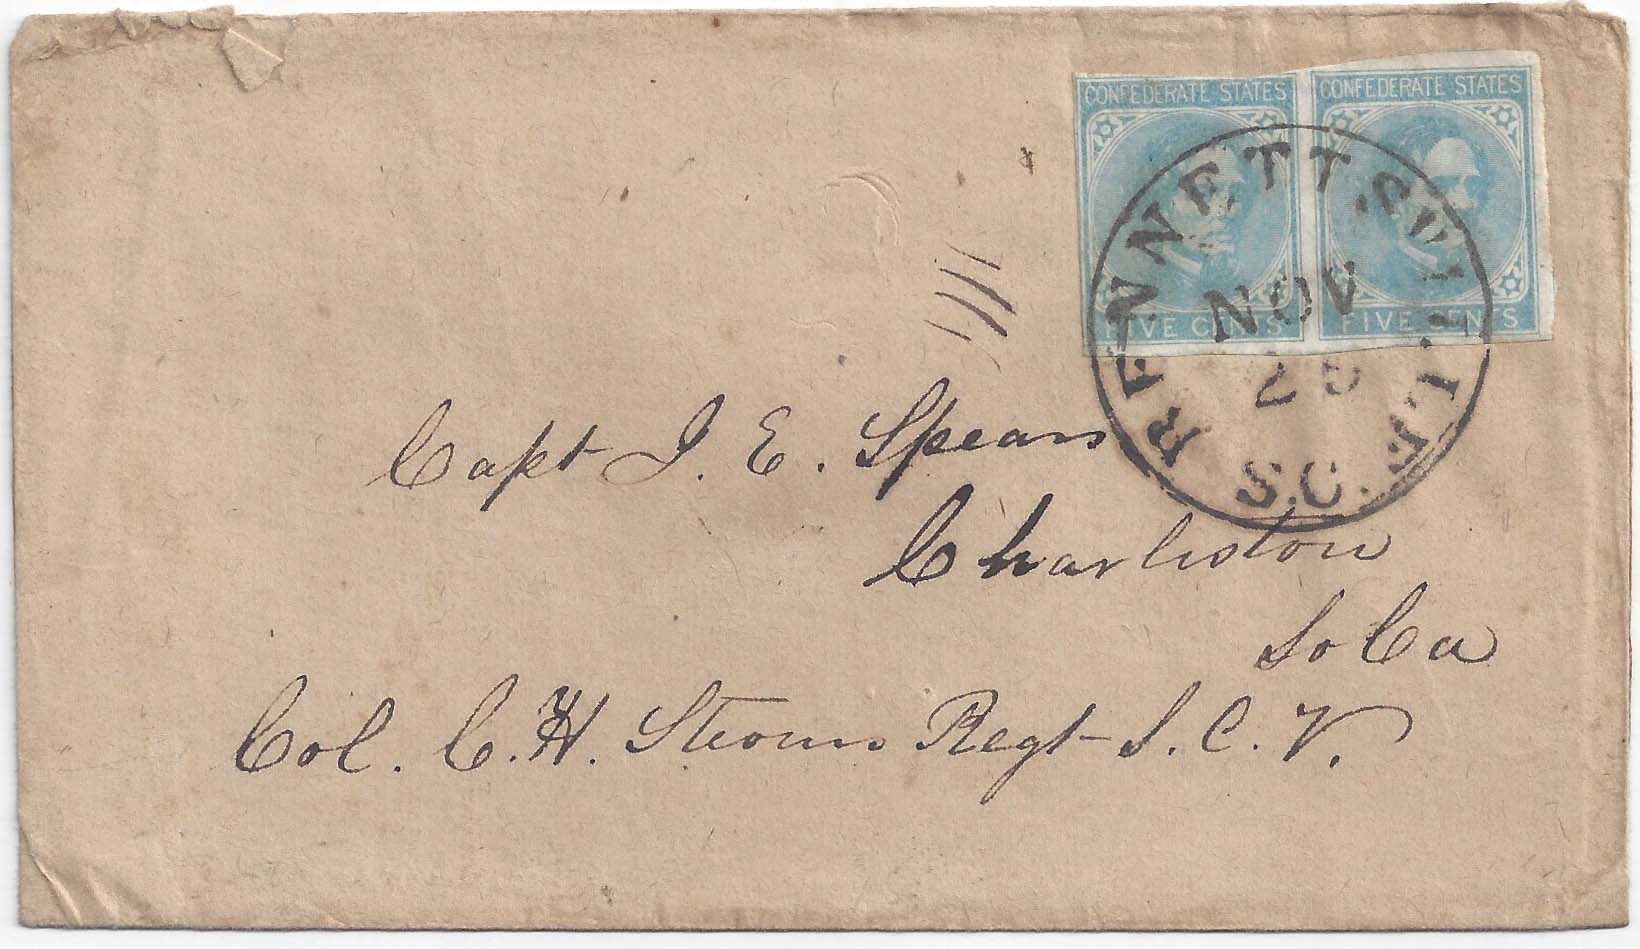 CONFEDERATE STATES CONFEDERATE STATES
FIVE CENTS FIVE CENTS
BENNETTSVILLE
NOV
25
S.C.
Capt J. E. Spears
Charleston
So Ca
Col. C. H. Stevens Regt S. C. V.